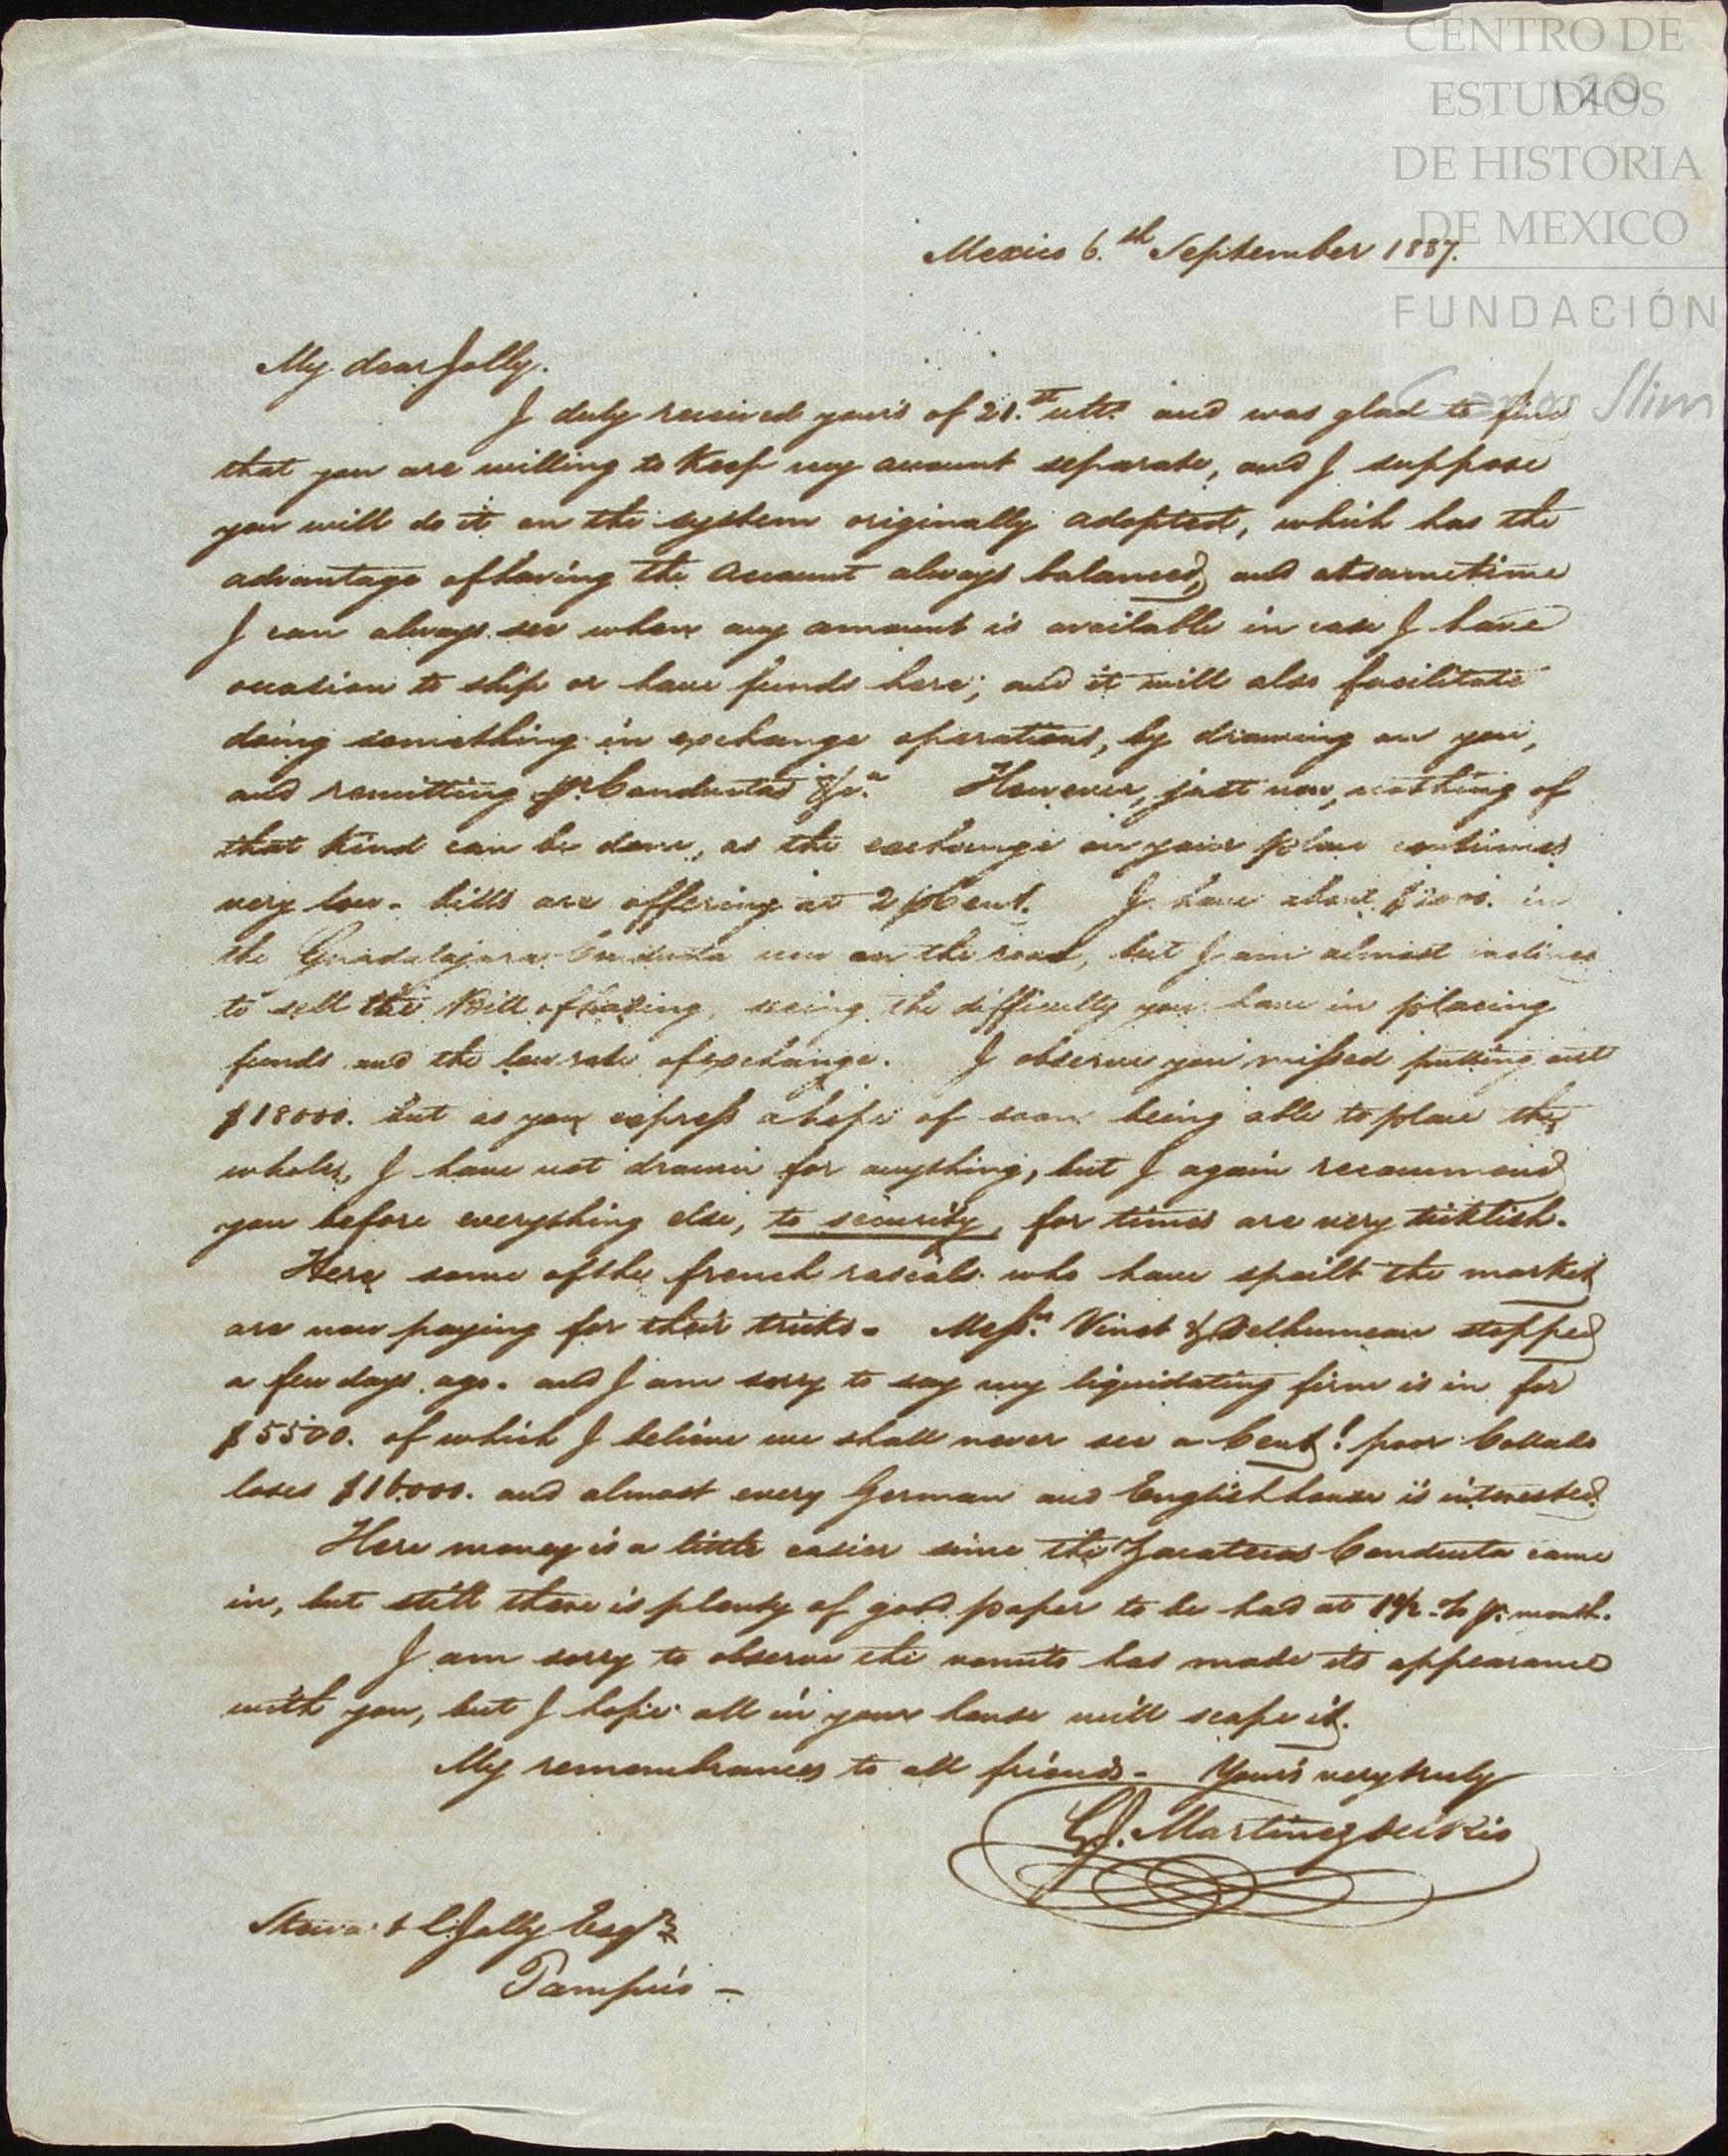 CENTRO DE
ESTUDIOS
DE HISTORIA
DE MEXICO
FUNDACIÓN
Carlos Slim
120
Mexico 6.th September 1837.
My dear Jolly.
I duly received your's of 21.st ulto. and was glad to find
that you are willing to Keep my account separate, and I suppose
you will do it on the system originally adopted, which has the
advantage of having the Account always balanced, and at same time
I can always see when any amount is available in case I have
occasion to ship or have funds here; and it will also facilitate
doing something in exchange operations, by drawing on you,
and remitting pr. Conductas &c.a However, just now, nothing of
that Kind can be done, as the exchange on your place continues
very low - bills are offering at 2 p Cent. I have about $2000. in
the Guadalajara Conducta now on the road, but I am almost inclined
to sell the Bill of lading, seeing the difficulty you have in placing
funds and the low rate of exchange. I observe you missed putting out
$18000. but as you express a hope of soon being able to place the
whole, I have not drawn for anything, but I again recommend
you before everything else, to security, for times are very ticklish.
Here some of the french rascals who have spoilt the market
are now paying for their tricks. Messrs. Vinet & Delhumeau stopped
a few days ago. and I am sorry to say my liquidating firm is in for
$5500. of which I believe we shall never see a Cent! poor Collado
loses $16000. and almost every German and English house is interested.
Here money is a little easier since the Zacatecas Conducta came
in, but still there is plenty of good paper to be had at 1 1/2 % pr. month.
I am sorry to observe the vomito has made its appearance
with you, but I hope all in your house will scape it.
My remembrances to all friends - Your's very truly
G.J. Martinez del Rio
Stewart L. Jolly Esqre
Tampico -